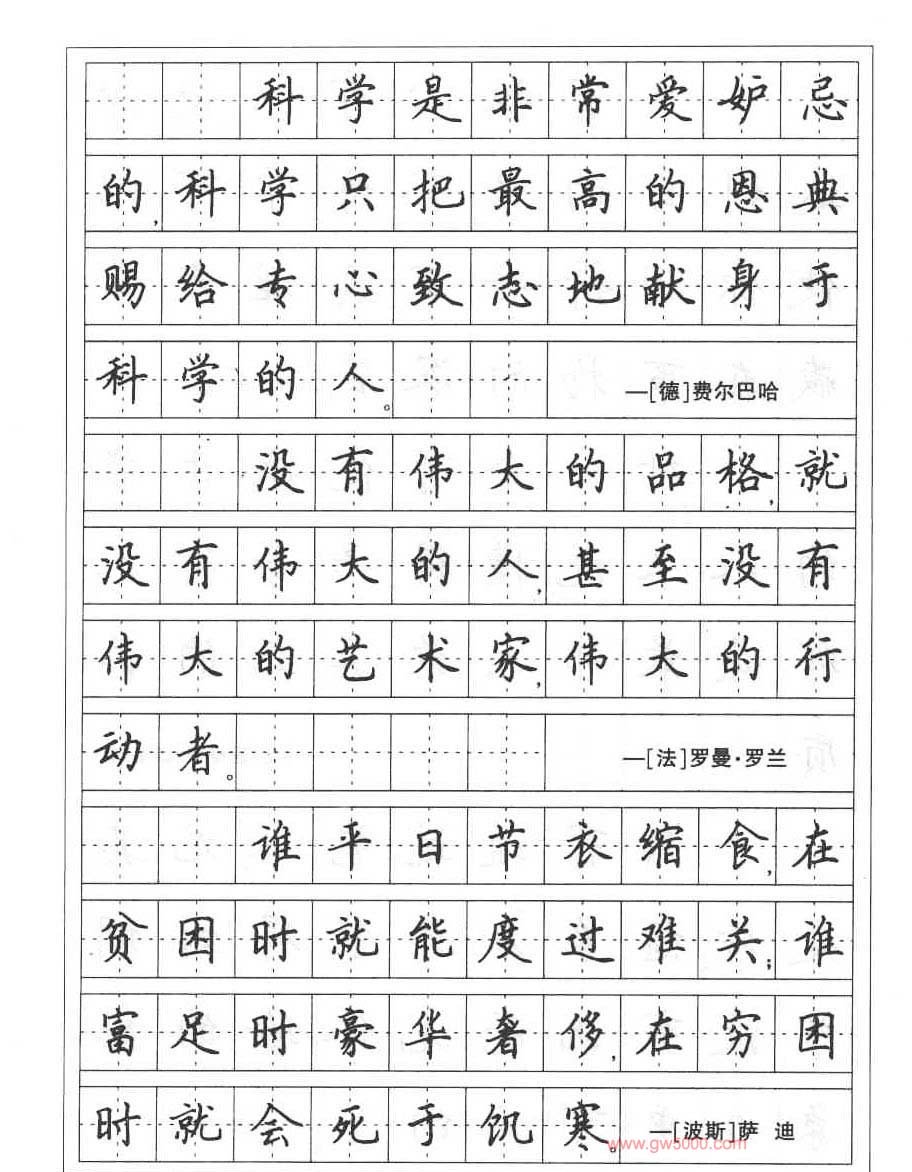 科学是非常爱妒忌
的,科学只把最高的恩典
赐给专心致志地献身于
科学的人。 —[德]费尔巴哈
没有伟大的品格,就
没有伟大的人,甚至没有
伟大的艺术家,伟大的行
动者。 —[法]罗曼·罗兰
谁平日节衣缩食,在
贫困时就能度过难关;谁
富足时豪华奢侈,在穷困
时就会死于饥寒。 —[波斯]萨 迪
www.gw5000.com